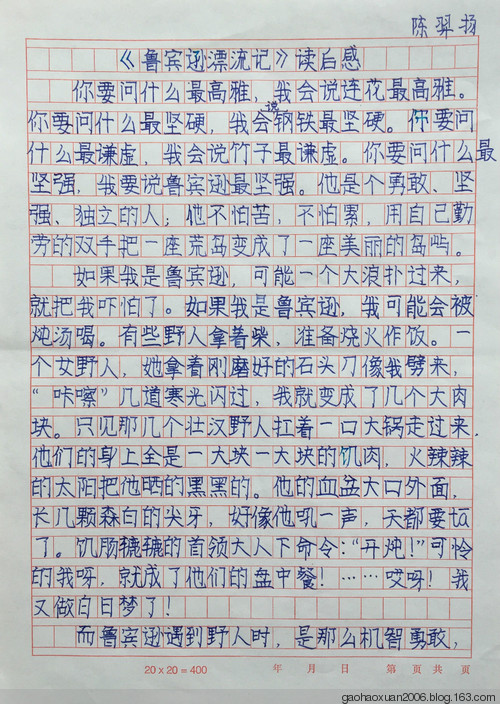 陈羿扬
《鲁宾逊漂流记》读后感
你要问什么最高雅，我会说连花最高雅。
你要问什么最坚硬，我会说钢铁最坚硬。你要问
什么最谦虚，我会说竹子最谦虚。你要问什么最
坚强，我要说鲁宾逊最坚强。他是个勇敢、坚
强、独立的人；他不怕苦，不怕累，用自己勤
劳的双手把一座荒岛变成了一座美丽的岛屿。
如果我是鲁宾逊，可能一个大浪扑过来，
就把我吓怕了。如果我是鲁宾逊，我可能会被
炖汤喝。有些野人拿着柴，准备烧火作饭。一
个女野人，她拿着刚磨好的石头刀像我劈来，
“咔嚓”几道寒光闪过，我就变成了几个大肉
块。只见那几个壮汉野人扛着一口大锅走过来，
他们的身上全是一大块一大块的饥肉，火辣辣
的太阳把他晒的黑黑的。他的血盆大口外面，
长几颗森白的尖牙，好像他吼一声，天都要ta
了。饥肠辘辘的首领大人下命令：“开炖！”可怜
的我呀，就成了他们的盘中餐！……哎呀！我
又做白日梦了！
而鲁宾逊遇到野人时，是那么机智勇敢，
20×20=400 年 月 日 第 页 共 页
gaohaoxuan2006.blog.163.com